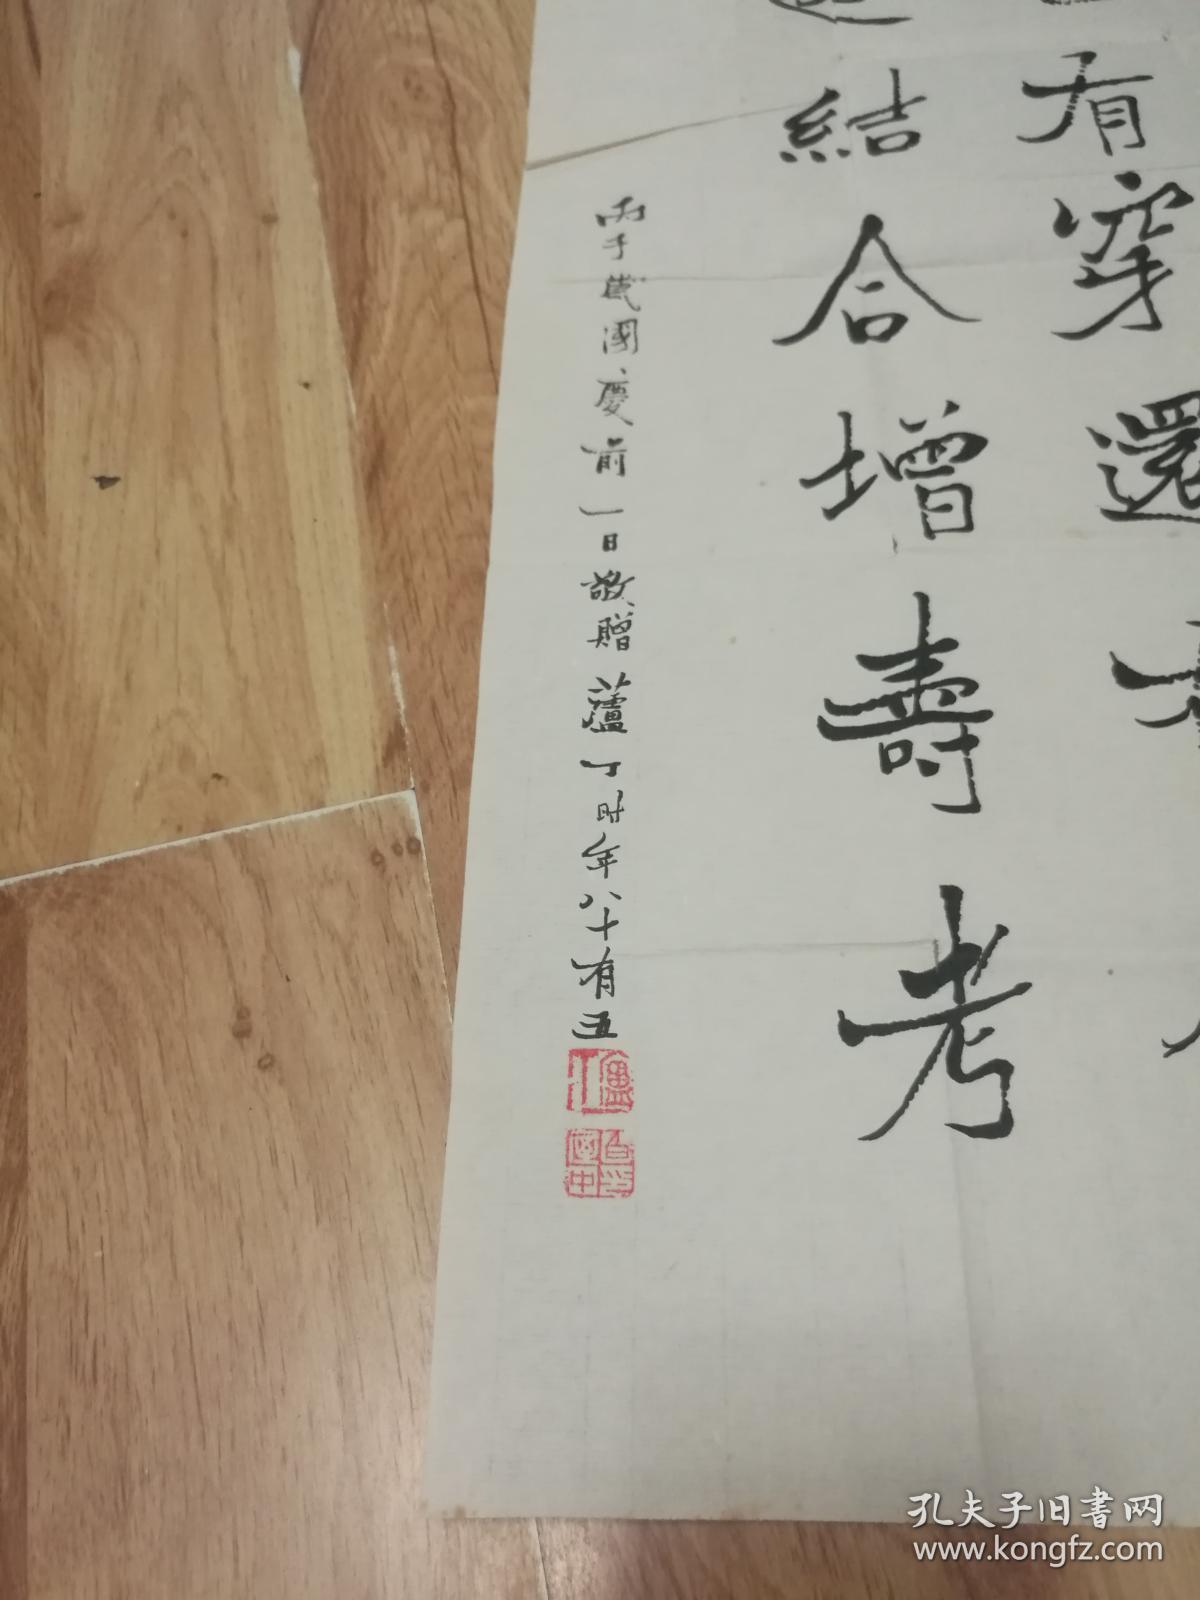 有穿還
結合增壽考
丙子歲國慶前一日敬贈蘆丁时年八十有五
孔夫子旧书网
www.kongfz.com